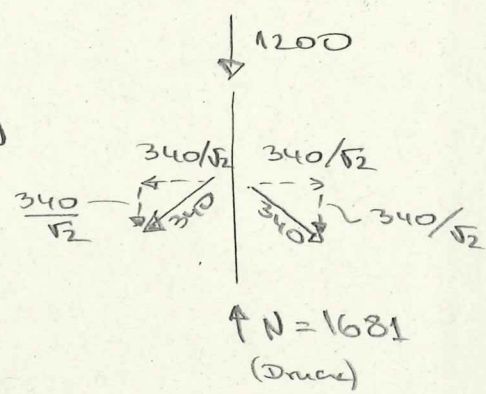 1200
340/√2 340/√2
340/√2 340 340 340/√2
N = 1681
(Druck)